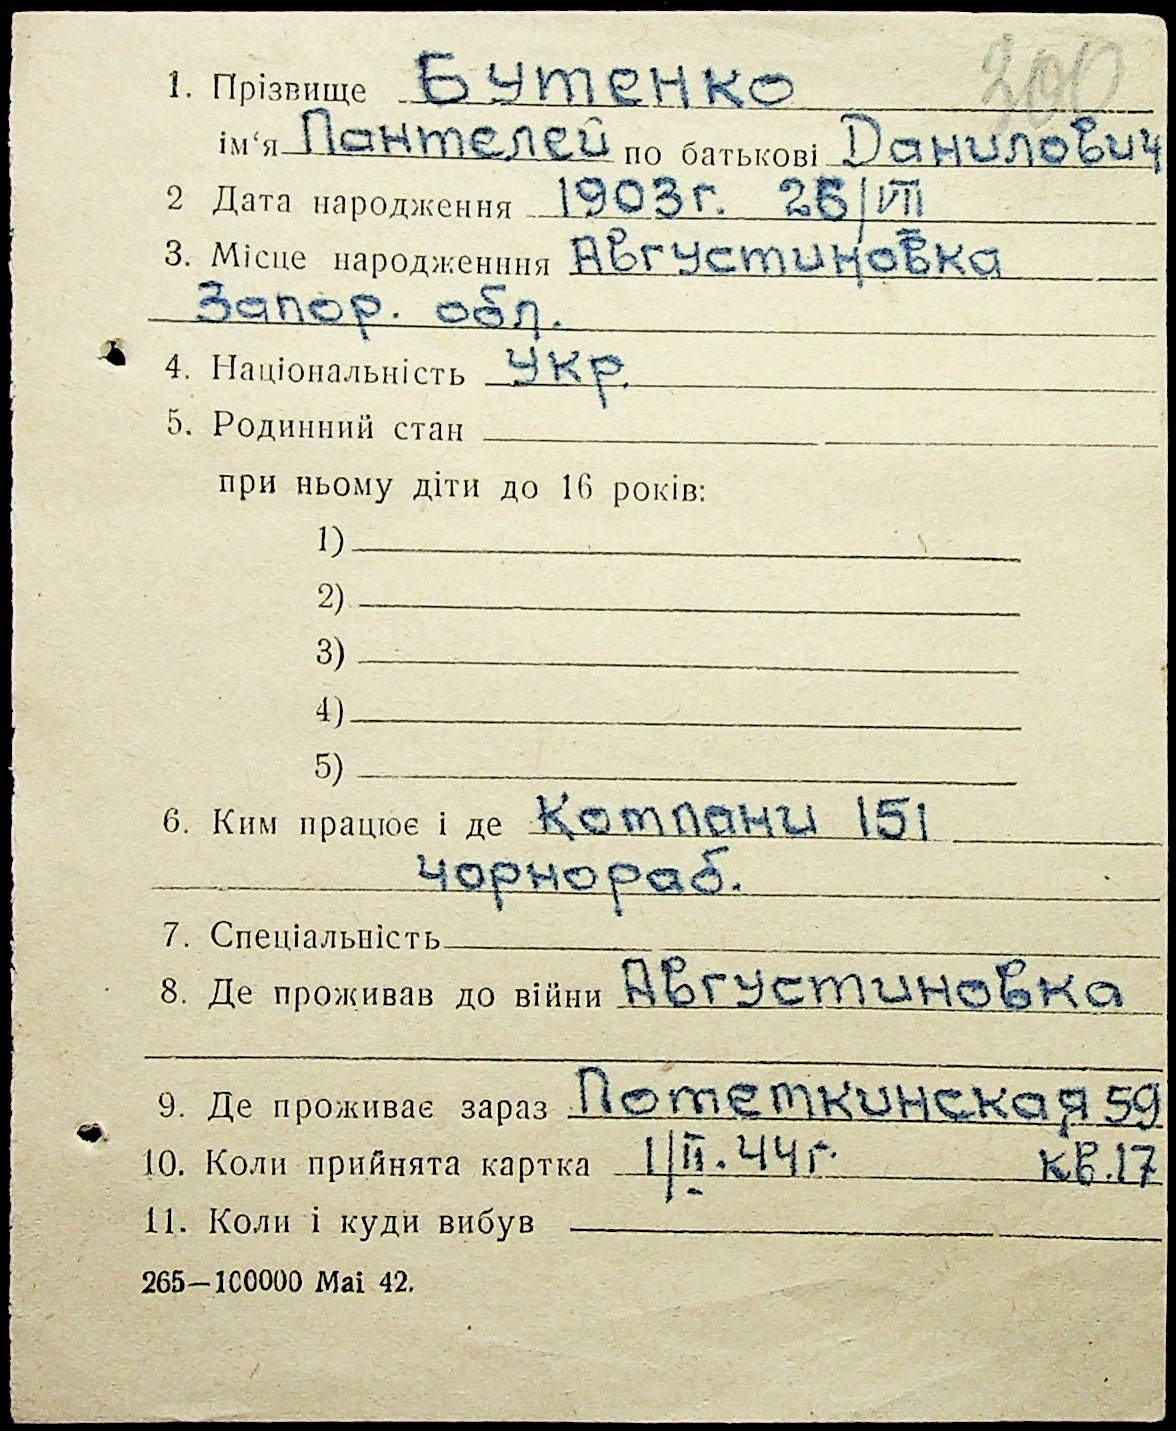 300
1. Прізвище Бутенко
ім‘я Пантелей по батькові Данилович
2 Дата народження 1903г. 26/VII
3. Місце народженння Августиновка
Запор. обл.
4. Національність Укр.
5. Родинний стан
при ньому діти до 16 років:
1)
2)
3)
4)
5)
6. Ким працює і де Компани 151
чорнораб.
7. Спеціальність
8. Де проживав до війни Августиновка
9. Де проживає зараз Потемкинская 59
10. Коли прийнята картка 1/II. 44г. кв. 17
11. Коли і куди вибув
265—100000 Mai 42.